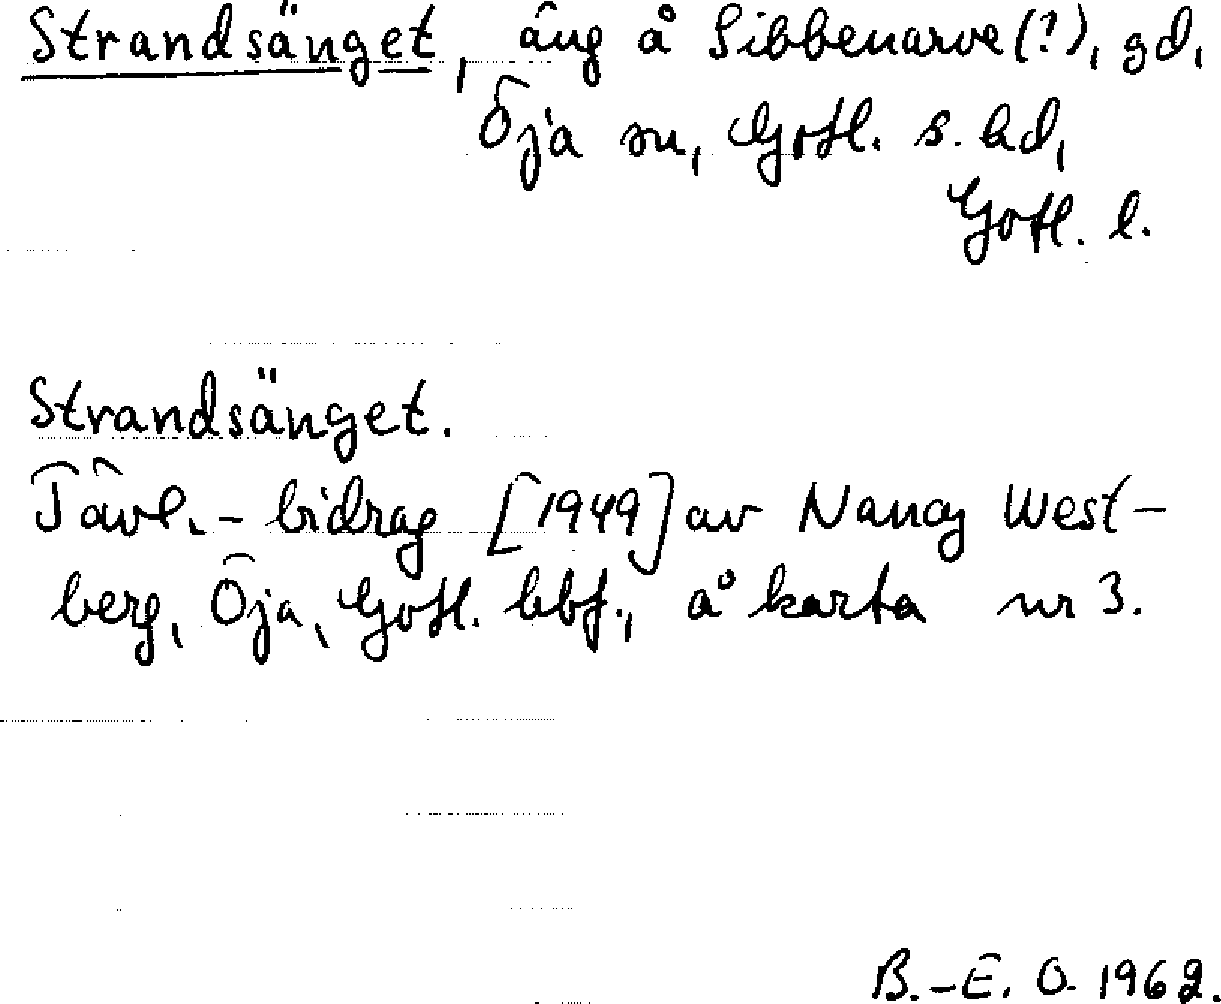 Strandsänget, äng å Sibbenarve(?), gd,
Öja sn, Gotl. s. hd,
Gotl. l.
Strandsänget.
Tävl.-bidrag [1949] av Nancy West-
berg, Öja, Gotl. hbf., å karta nr 3.
B.-E. O. 1962.